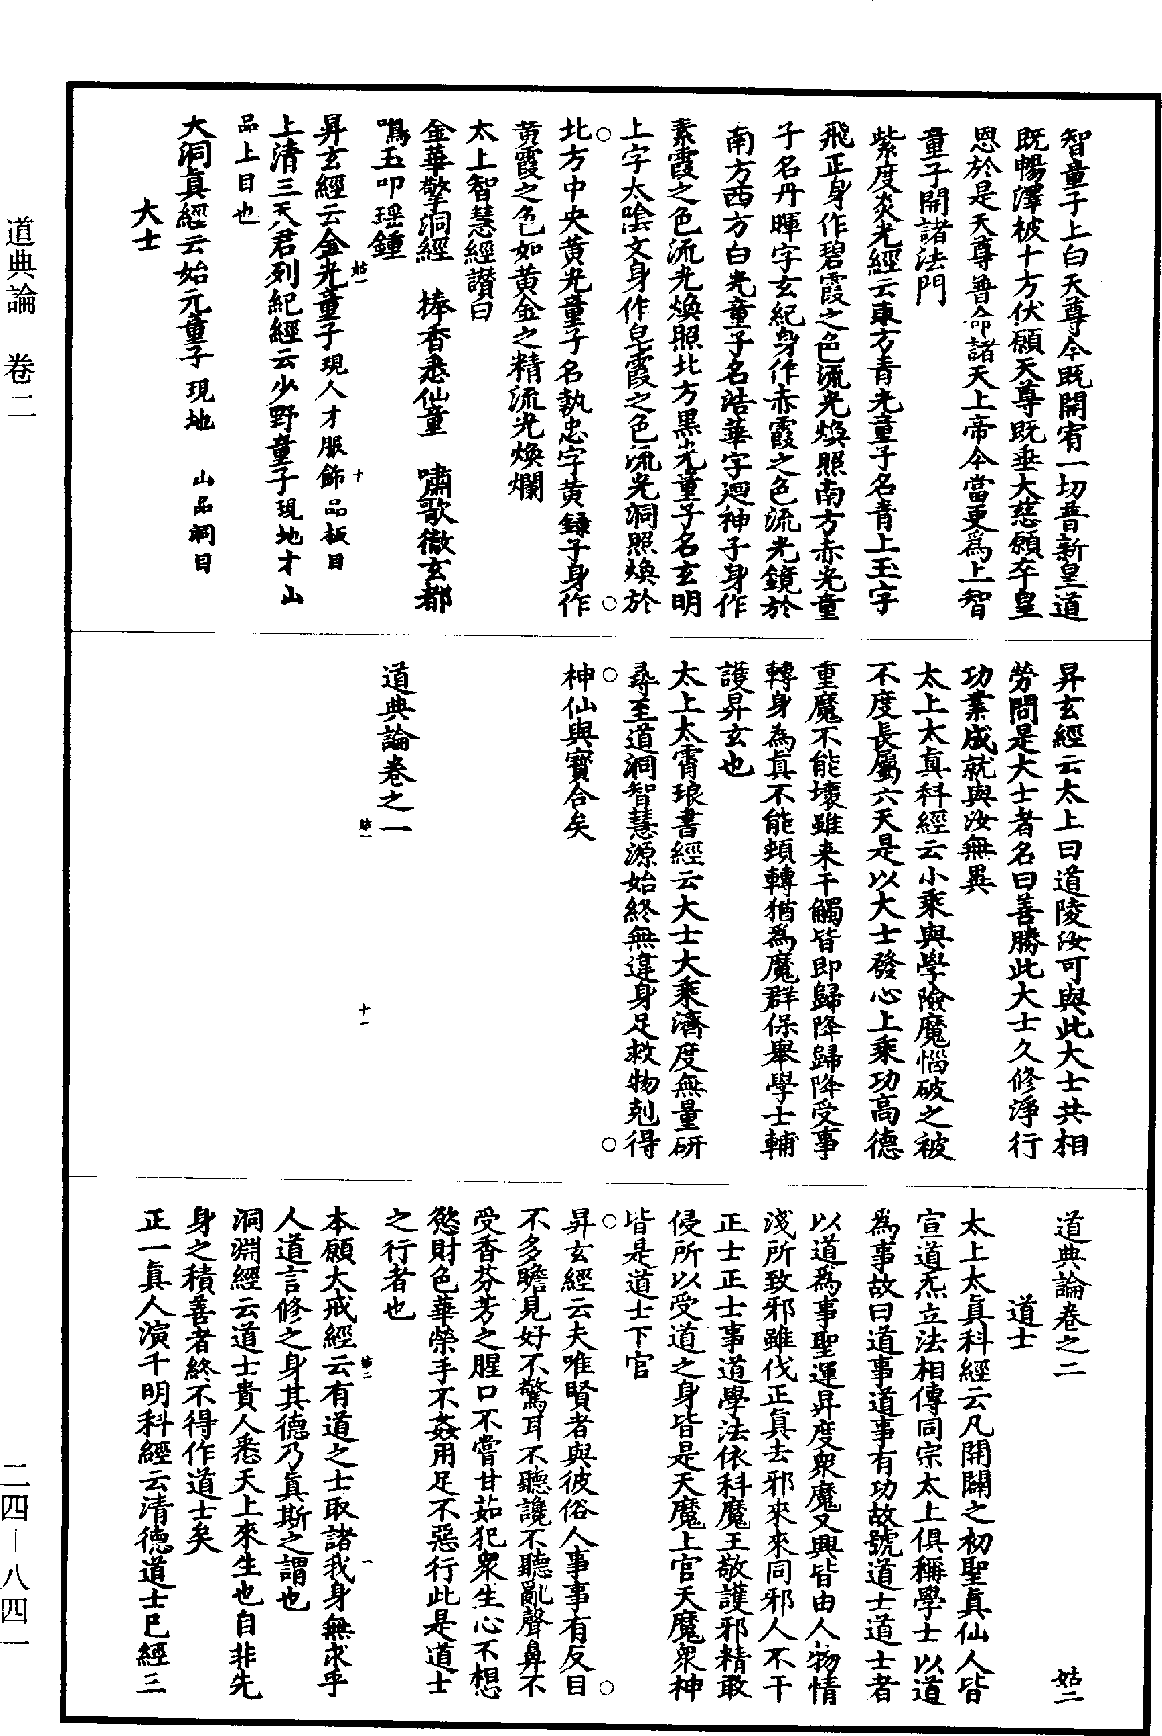 智童子上白天尊今既開宥一切普新皇道
既暢澤被十方伏願天尊既垂大慈願卒皇
恩於是天尊普命諸天上帝今當更爲上智
童子開諸法門
紫度炎光經云東方青光童子名青上玉字
飛正身作碧霞之色流光煥照南方赤光童
子名丹暉字玄紀身作赤霞之色流光鏡於
南方西方白光童子名浩華字迴神子身作
素霞之色流光煥照北方黑光童子名玄明
上字太陰文身作皂霞之色流光洞照煥於
北方中央黄光童子名執忠字黄錘子身作
黄霞之色如黄金之精流光煥爛
太上智慧經讃曰
金華擎洞經　捧香悉仙童　嘯歌徹玄都
鳴玉叩瑶鍾
昇玄經云金光童子現人才服飾品板目
姑一　十
上清三天君列紀經云少野童子現地才山
品上目也
大洞真經云始元童子現地　山品洞目
大士
昇玄經云太上曰道陵汝可與此大士共相
勞問是大士者名曰善勝此大士久修淨行
功業成就與汝無異
太上太真科經云小乘與學險魔惱破之被
不度長屬六天是以大士發心上乘功高德
重魔不能壞雖来干觸皆即歸降歸降受事
轉身為真不能頓轉猶爲魔群保舉學士輔
護昇玄也
太上太霄琅書經云大士大乘濟度無量研
尋至道洞智慧源始終無違身足救物剋得
神仙與寳合矣
道典論卷之一
姑一　十一
道典論卷之二　姑二
道士
太上太真科經云凡開闢之初聖真仙人皆
宣道炁立法相傳同宗太上俱稱學士以道
為事故曰道事道事有功故號道士道士者
以道爲事聖運昇度衆魔又興皆由人物情
淺所致邪雖伐正真去邪來來同邪人不干
正士正士事道學法依科魔王敬護邪精敢
侵所以受道之身皆是天魔上官天魔衆神
皆是道士下官
昇玄經云夫唯賢者與彼俗人事事有反目
不多瞻見好不驚耳不聽讒不聽亂聲鼻不
受香芬芳之腥口不嘗甘茹犯衆生心不想
慾財色華榮手不姦用足不惡行此是道士
之行者也
姑二　一
本願大戒經云有道之士取諸我身無求乎
人道言修之身其德乃真斯之謂也
洞淵經云道士貴人悉天上來生也自非先
身之積善者終不得作道士矣
正一真人演千明科經云清德道士已經三
道典論　卷二
二四—八四一